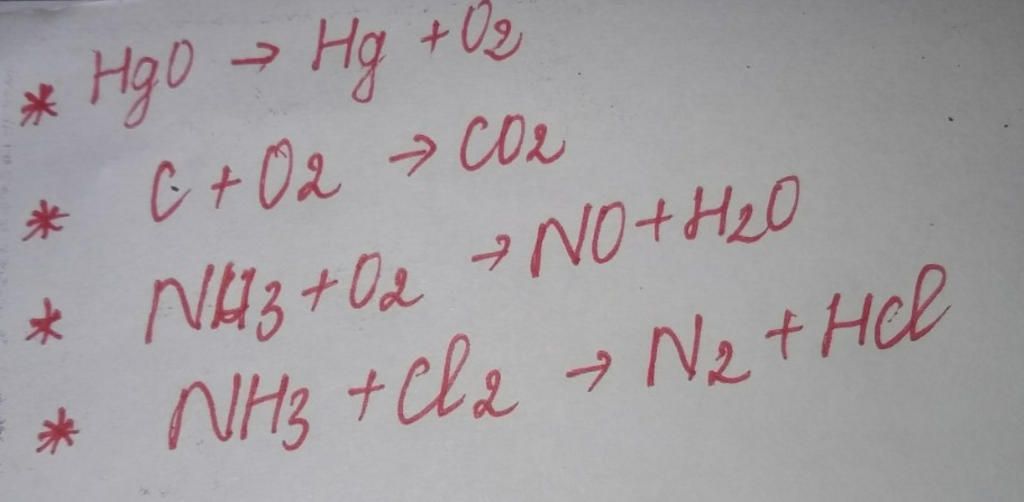 * HgO → Hg + O2
* C + O2 → CO2
* NH3 + O2 → NO + H2O
* NH3 + Cl2 → N2 + HCl